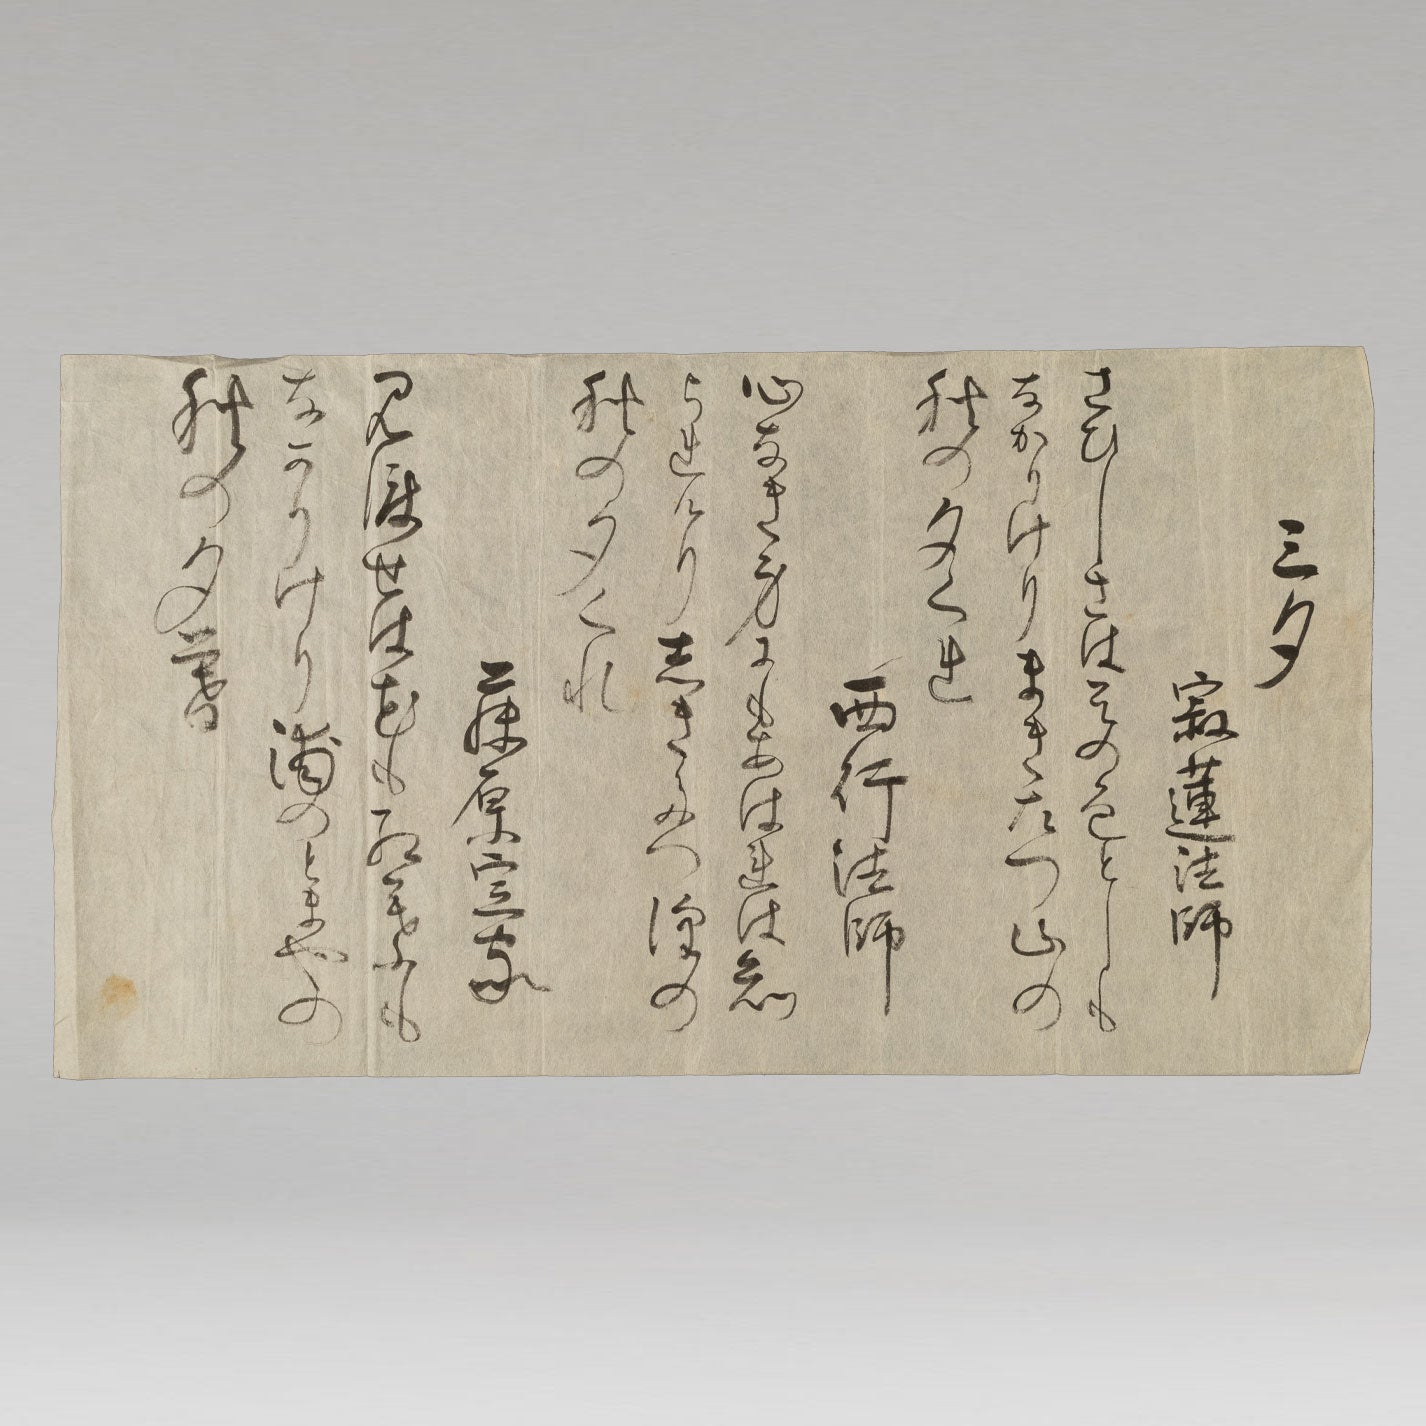 三夕
寂蓮法師
さひしさはその色としも
なかりけりまき立つ山の
秋の夕くれ
西行法師
心なき身にもあはれは知
られけり志きたつ澤の
秋の夕くれ
藤原定家
見渡せは花も紅葉も
なかりけり浦のとまやの
秋の夕暮